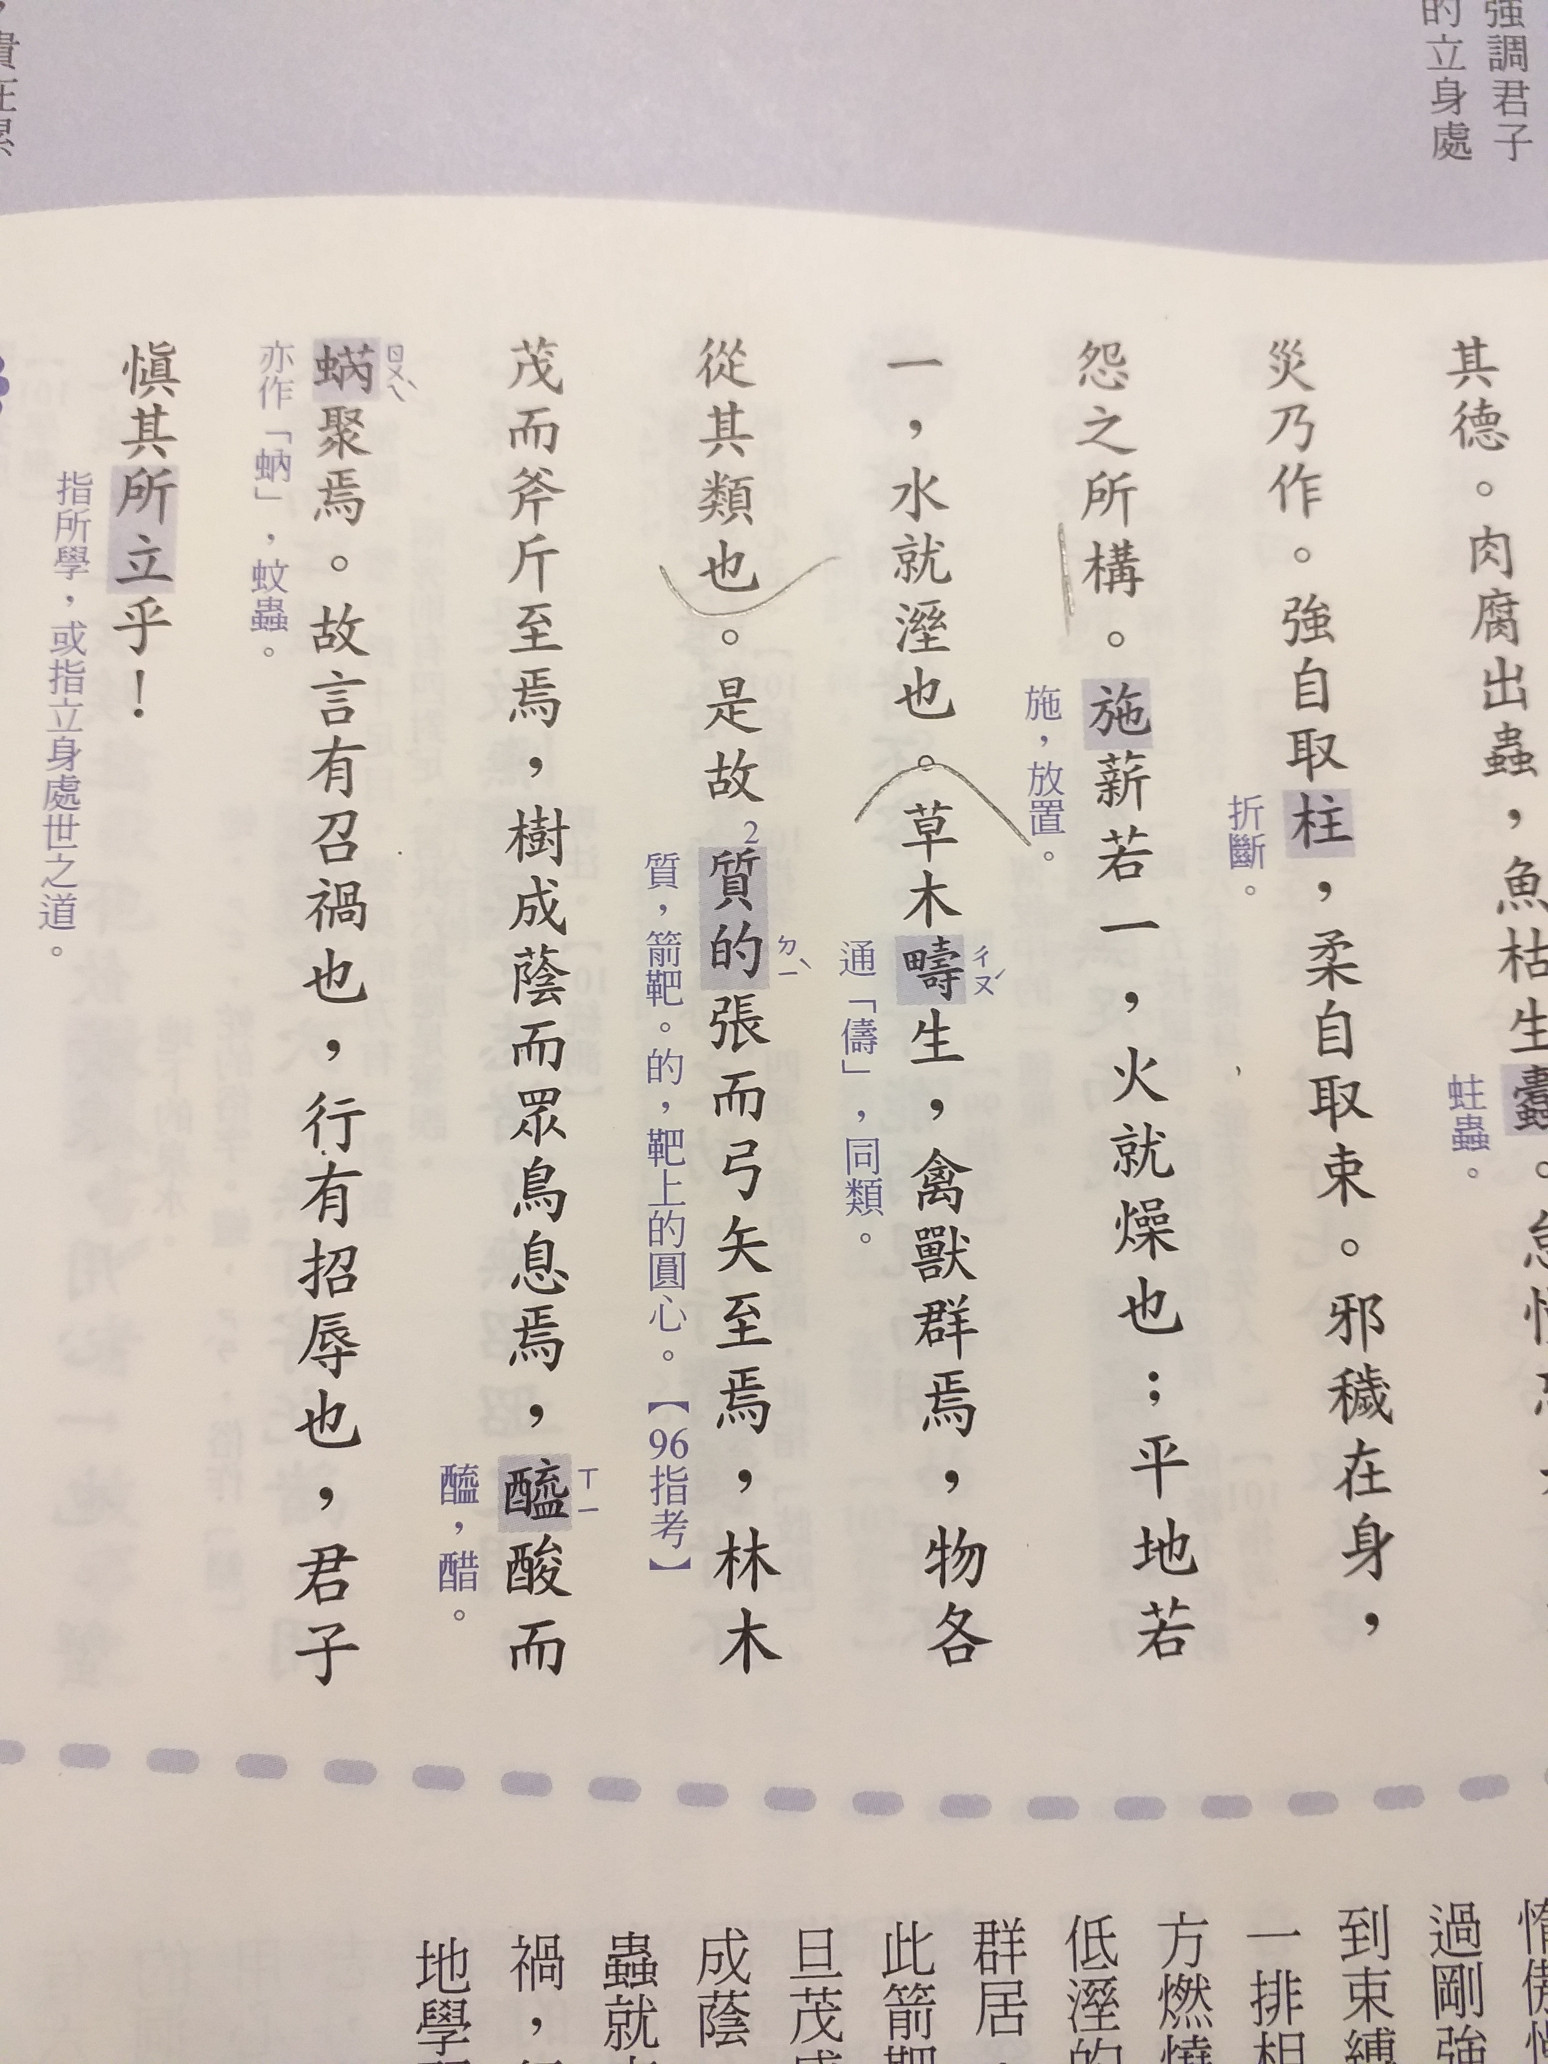 強調君子
的立身處
其德。肉腐出蟲，魚枯生蠹。怠
蛀蟲。
災乃作。強自取柱，柔自取束。邪穢在身，
折斷。
怨之所構。施薪若一，火就燥也；平地若
施，放置。
一，水就溼也。草木疇生，禽獸群焉，物各
ㄔㄡˊ
通「儔」，同類。
從其類也。是故2質的張而弓矢至焉，林木
ㄉㄧˋ
質，箭靶。的，靶上的圓心。【96指考】
茂而斧斤至焉，樹成蔭而眾鳥息焉，醯酸而
ㄒㄧ
醯，醋。
蜹聚焉。故言有召禍也，行有招辱也，君子
ㄖㄨㄟˋ
亦作「蚋」，蚊蟲。
慎其所立乎！
指所學，或指立身處世之道。
過剛強
到束縛
一排相
方燃燒
低溼的
群居，
此箭靶
旦茂盛
成蔭
蟲就
禍，
地學